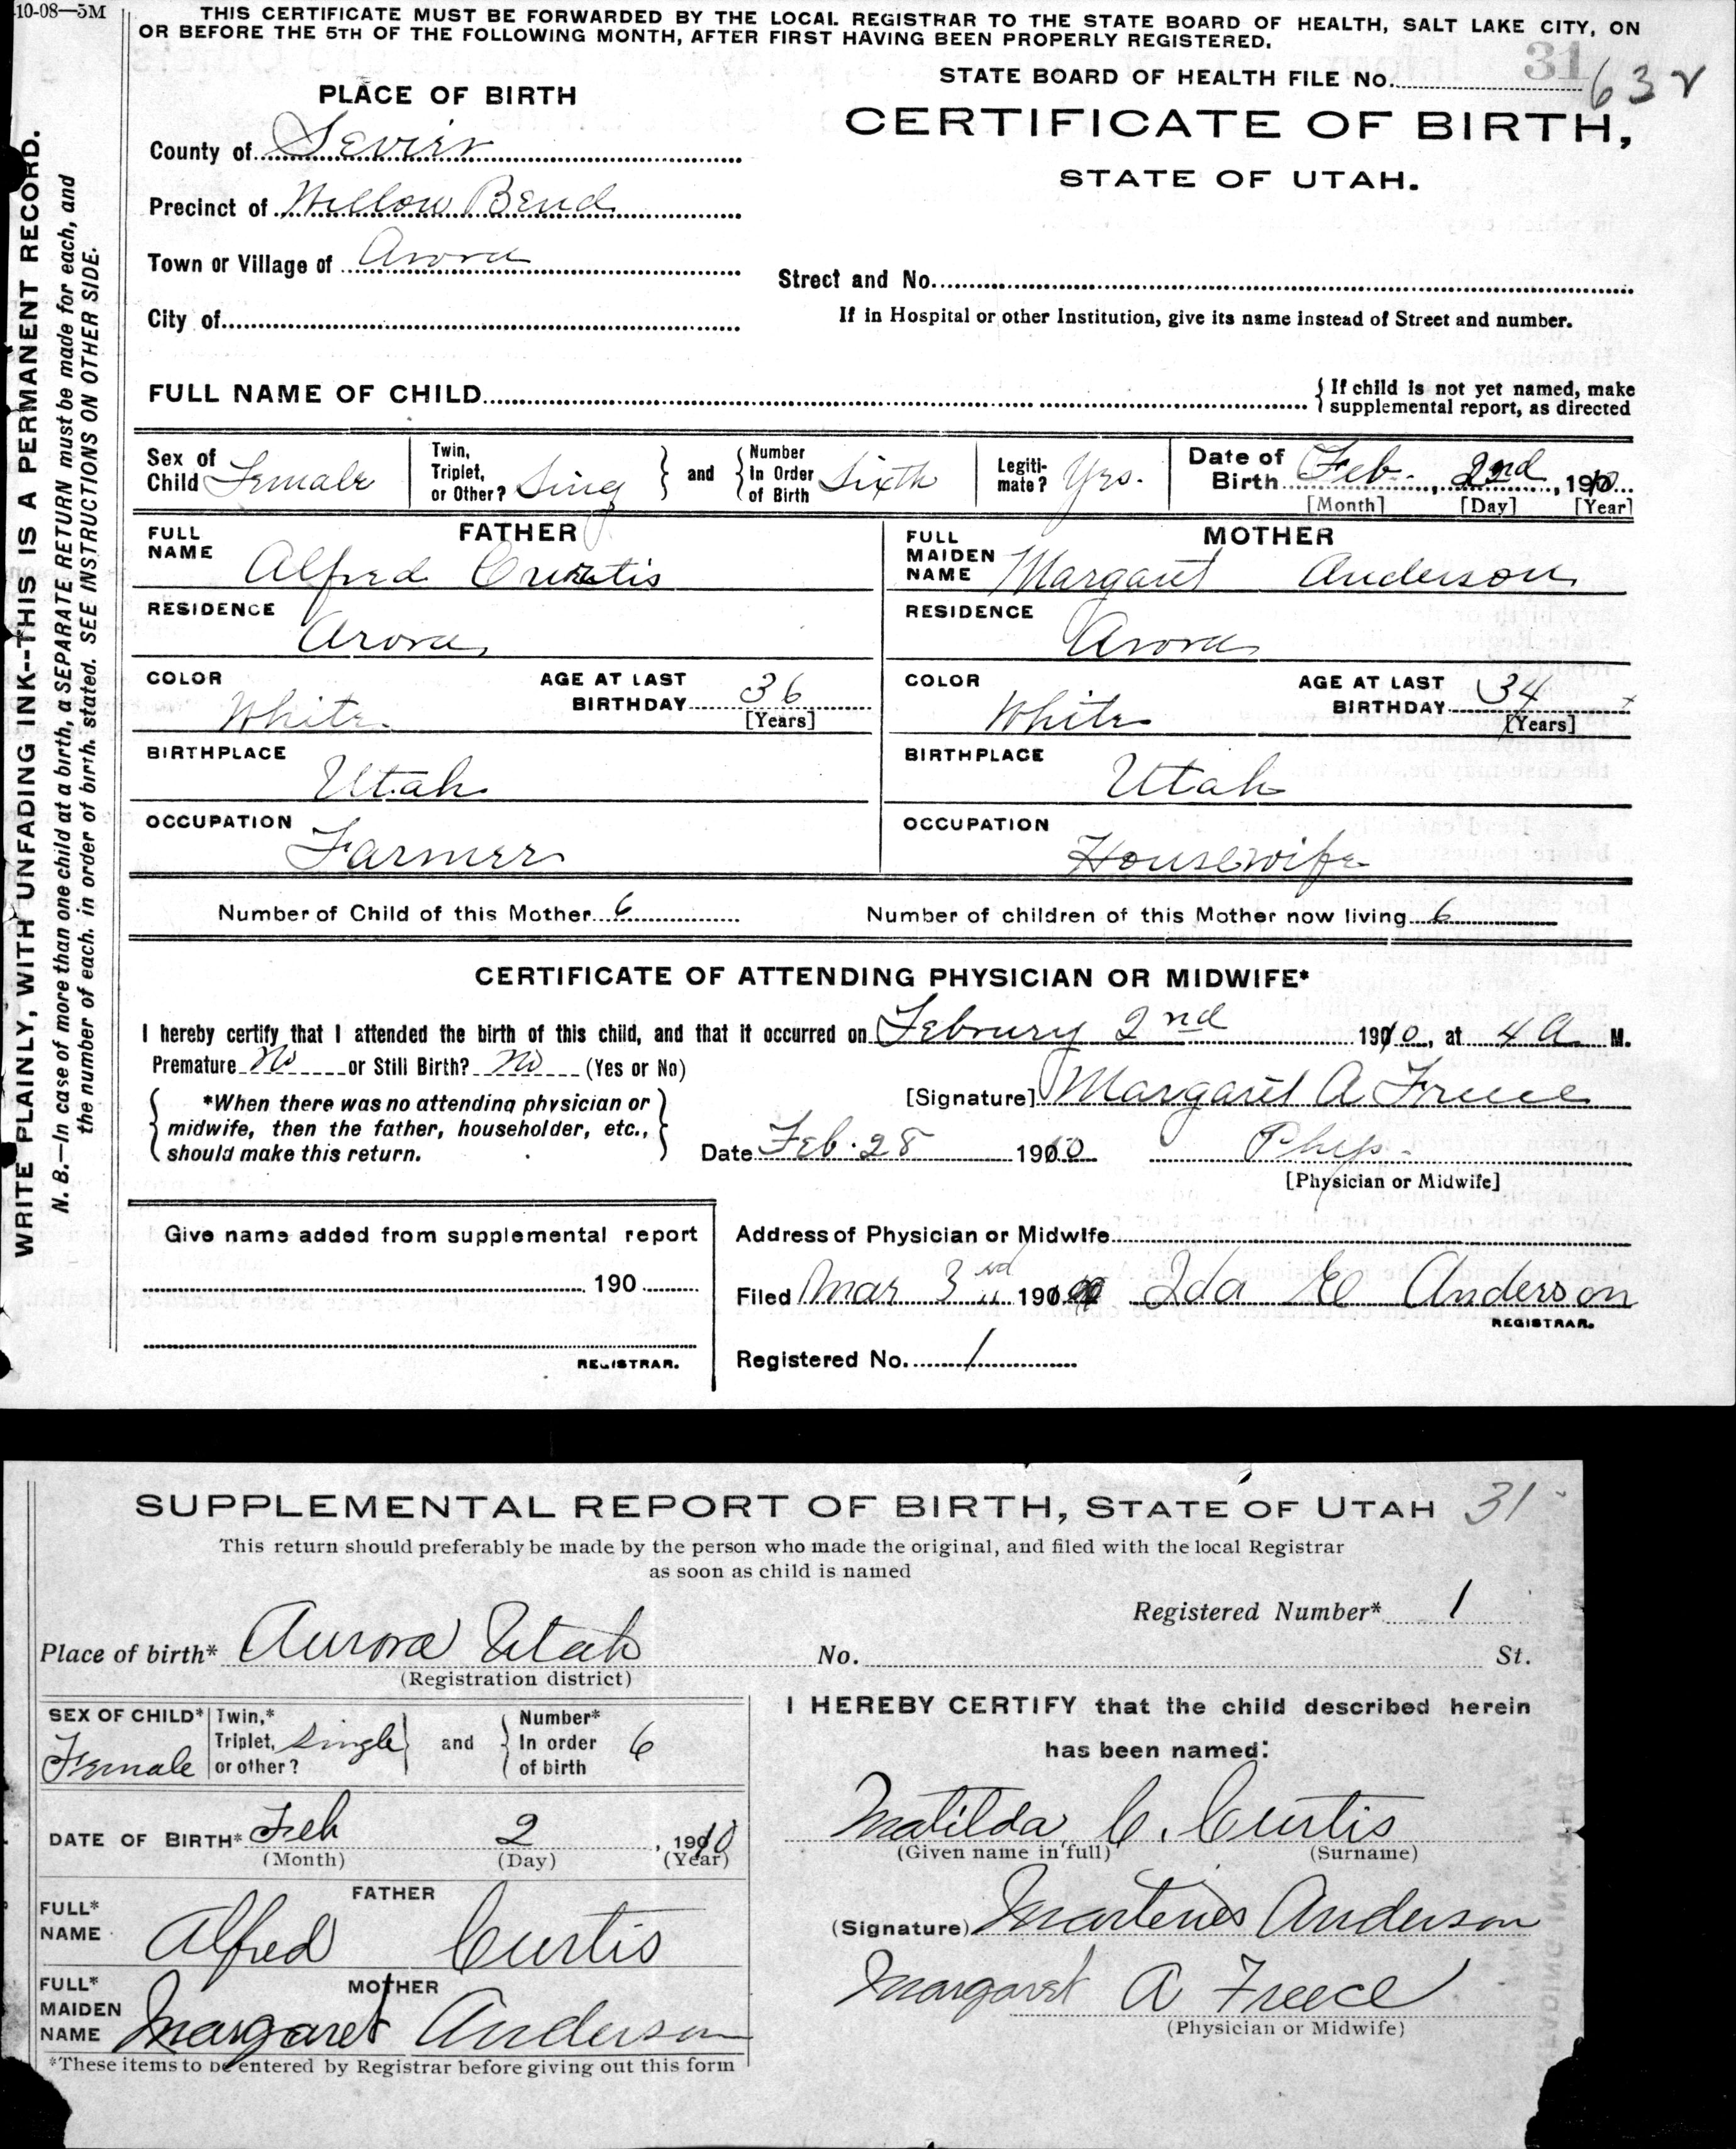 10-08—5M
THIS CERTIFICATE MUST BE FORWARDED BY THE LOCAL REGISTRAR TO THE STATE BOARD OF HEALTH, SALT LAKE CITY, ON
OR BEFORE THE 5TH OF THE FOLLOWING MONTH, AFTER FIRST HAVING BEEN PROPERLY REGISTERED.
STATE BOARD OF HEALTH FILE No. 31 63
PLACE OF BIRTH
CERTIFICATE OF BIRTH,
STATE OF UTAH.
County of Sevier
Precinct of Willow Bend
Town or Village of Arora
Street and No.
City of
If in Hospital or other Institution, give its name instead of Street and number.
FULL NAME OF CHILD
{ If child is not yet named, make
supplemental report, as directed
Sex of Child Female
Twin, Triplet, or Other? Sing } and { Number In Order of Birth Sixth
Legiti-mate? Yes.
Date of Birth Feb. 2nd, 1910
[Month] [Day] [Year]
FATHER
FULL NAME Alfred Curtis
MOTHER
FULL MAIDEN NAME Margaret Anderson
RESIDENCE Arora
RESIDENCE Arora
COLOR White
AGE AT LAST BIRTHDAY 36
[Years]
COLOR White
AGE AT LAST BIRTHDAY 34
[Years]
BIRTHPLACE Utah
BIRTHPLACE Utah
OCCUPATION Farmer
OCCUPATION Housewife
Number of Child of this Mother 6
Number of children of this Mother now living 6
CERTIFICATE OF ATTENDING PHYSICIAN OR MIDWIFE*
I hereby certify that I attended the birth of this child, and that it occurred on Februry 2nd 1910, at 4 A M.
Premature No or Still Birth? No (Yes or No)
{ *When there was no attending physician or
midwife, then the father, householder, etc.,
should make this return. }
[Signature] Margaret A Freece
Date Feb. 28 1910 Phys.
[Physician or Midwife]
Give name added from supplemental report
190
REGISTRAR.
Address of Physician or Midwife
Filed Mar 3rd 1910 Ida E Anderson
REGISTRAR.
Registered No. 1
WRITE PLAINLY, WITH UNFADING INK--THIS IS A PERMANENT RECORD.
N. B.—In case of more than one child at a birth, a SEPARATE RETURN must be made for each, and
the number of each, in order of birth, stated. SEE INSTRUCTIONS ON OTHER SIDE.
SUPPLEMENTAL REPORT OF BIRTH, STATE OF UTAH 31
This return should preferably be made by the person who made the original, and filed with the local Registrar
as soon as child is named
Registered Number* 1
Place of birth* Aurora Utah No. St.
(Registration district)
SEX OF CHILD* Female
Twin,* Triplet, or other? Single } and { Number* In order of birth 6
DATE OF BIRTH* Feb 2, 1910
(Month) (Day) (Year)
FATHER
FULL* NAME Alfred Curtis
MOTHER
FULL* MAIDEN NAME Margaret Anderson
*These items to be entered by Registrar before giving out this form
I HEREBY CERTIFY that the child described herein
has been named:
Matilda C. Curtis
(Given name in full) (Surname)
(Signature) Martenes Anderson
Margaret A Freece
(Physician or Midwife)